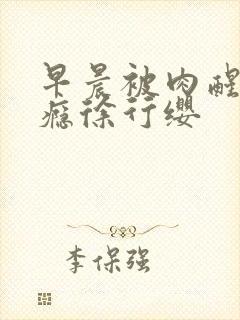 早晨被肉醒
瘾徐行缨
李保强